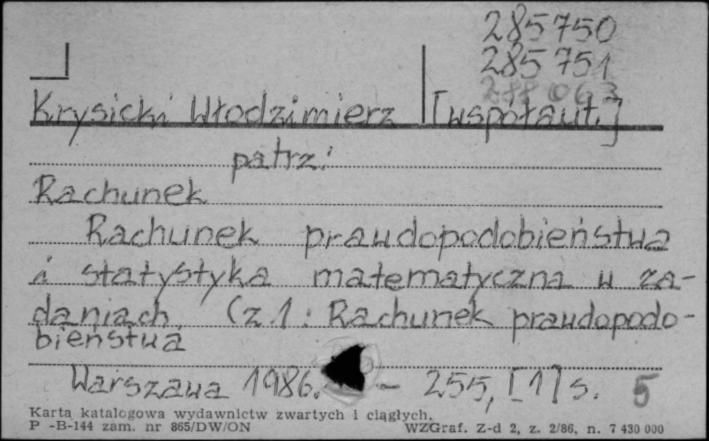 285750
285751
288063
Krysicki Włodzimierz [współaut.]
patrz:
Rachunek
Rachunek prawdopodobieństwa
i statystyka matematyczna w za-
daniach (z 1: Rachunek prawdopodo-
bieństwa
Warszawa 1986. - 255, [1] s. 5
Karta katalogowa wydawnictw zwartych i ciągłych.
P -B-144 zam. nr 865/DW/ON WZGraf. Z-d 2, z. 2/86, n. 7 430 000